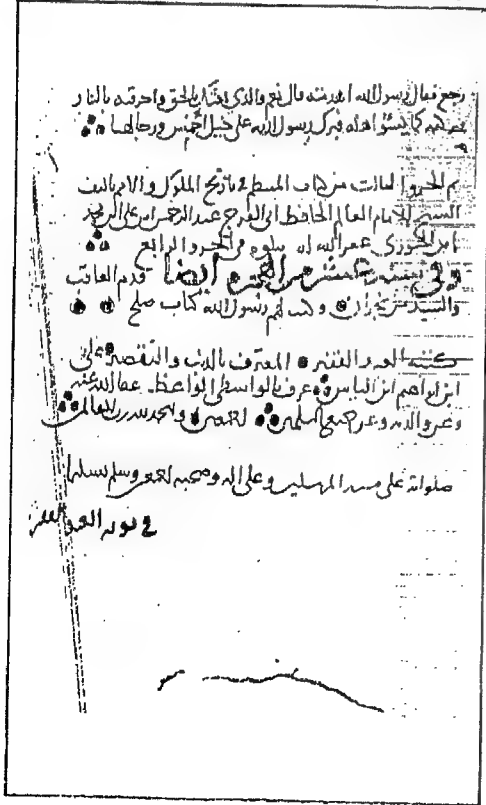 رجع فقال لرسول الله اهدمته قال نعم والذي بعثك بالحق واحرقته بالنار
فبرك رسول الله على خيل احمس ورجالها
تم الجزو الثالث من كتاب المنتظم في تاريخ الملوك والامم تاليف
الشيخ الامام العالم الحافظ ابي الفرج عبد الرحمن ابن علي
ابن الجوزي غفر الله له يتلوه في الجزو الرابع
وفي عشر من الهجرة ايضا قدم العاقب
والسيد من نجران وكتب لهم رسول الله كتاب صلح
كتبه العبد الفقير المعترف بالذنب والتقصير علي
ابن ابراهيم ابن الياس عرف بالواسطي الواعظ عفا الله عنه
وعن والديه وعن جميع المسلمين اجمعين والحمد لله رب العالمين
صلواته على سيد المرسلين وعلى اله وصحبه اجمعين وسلم تسليما
في نوبة العبد الفقير